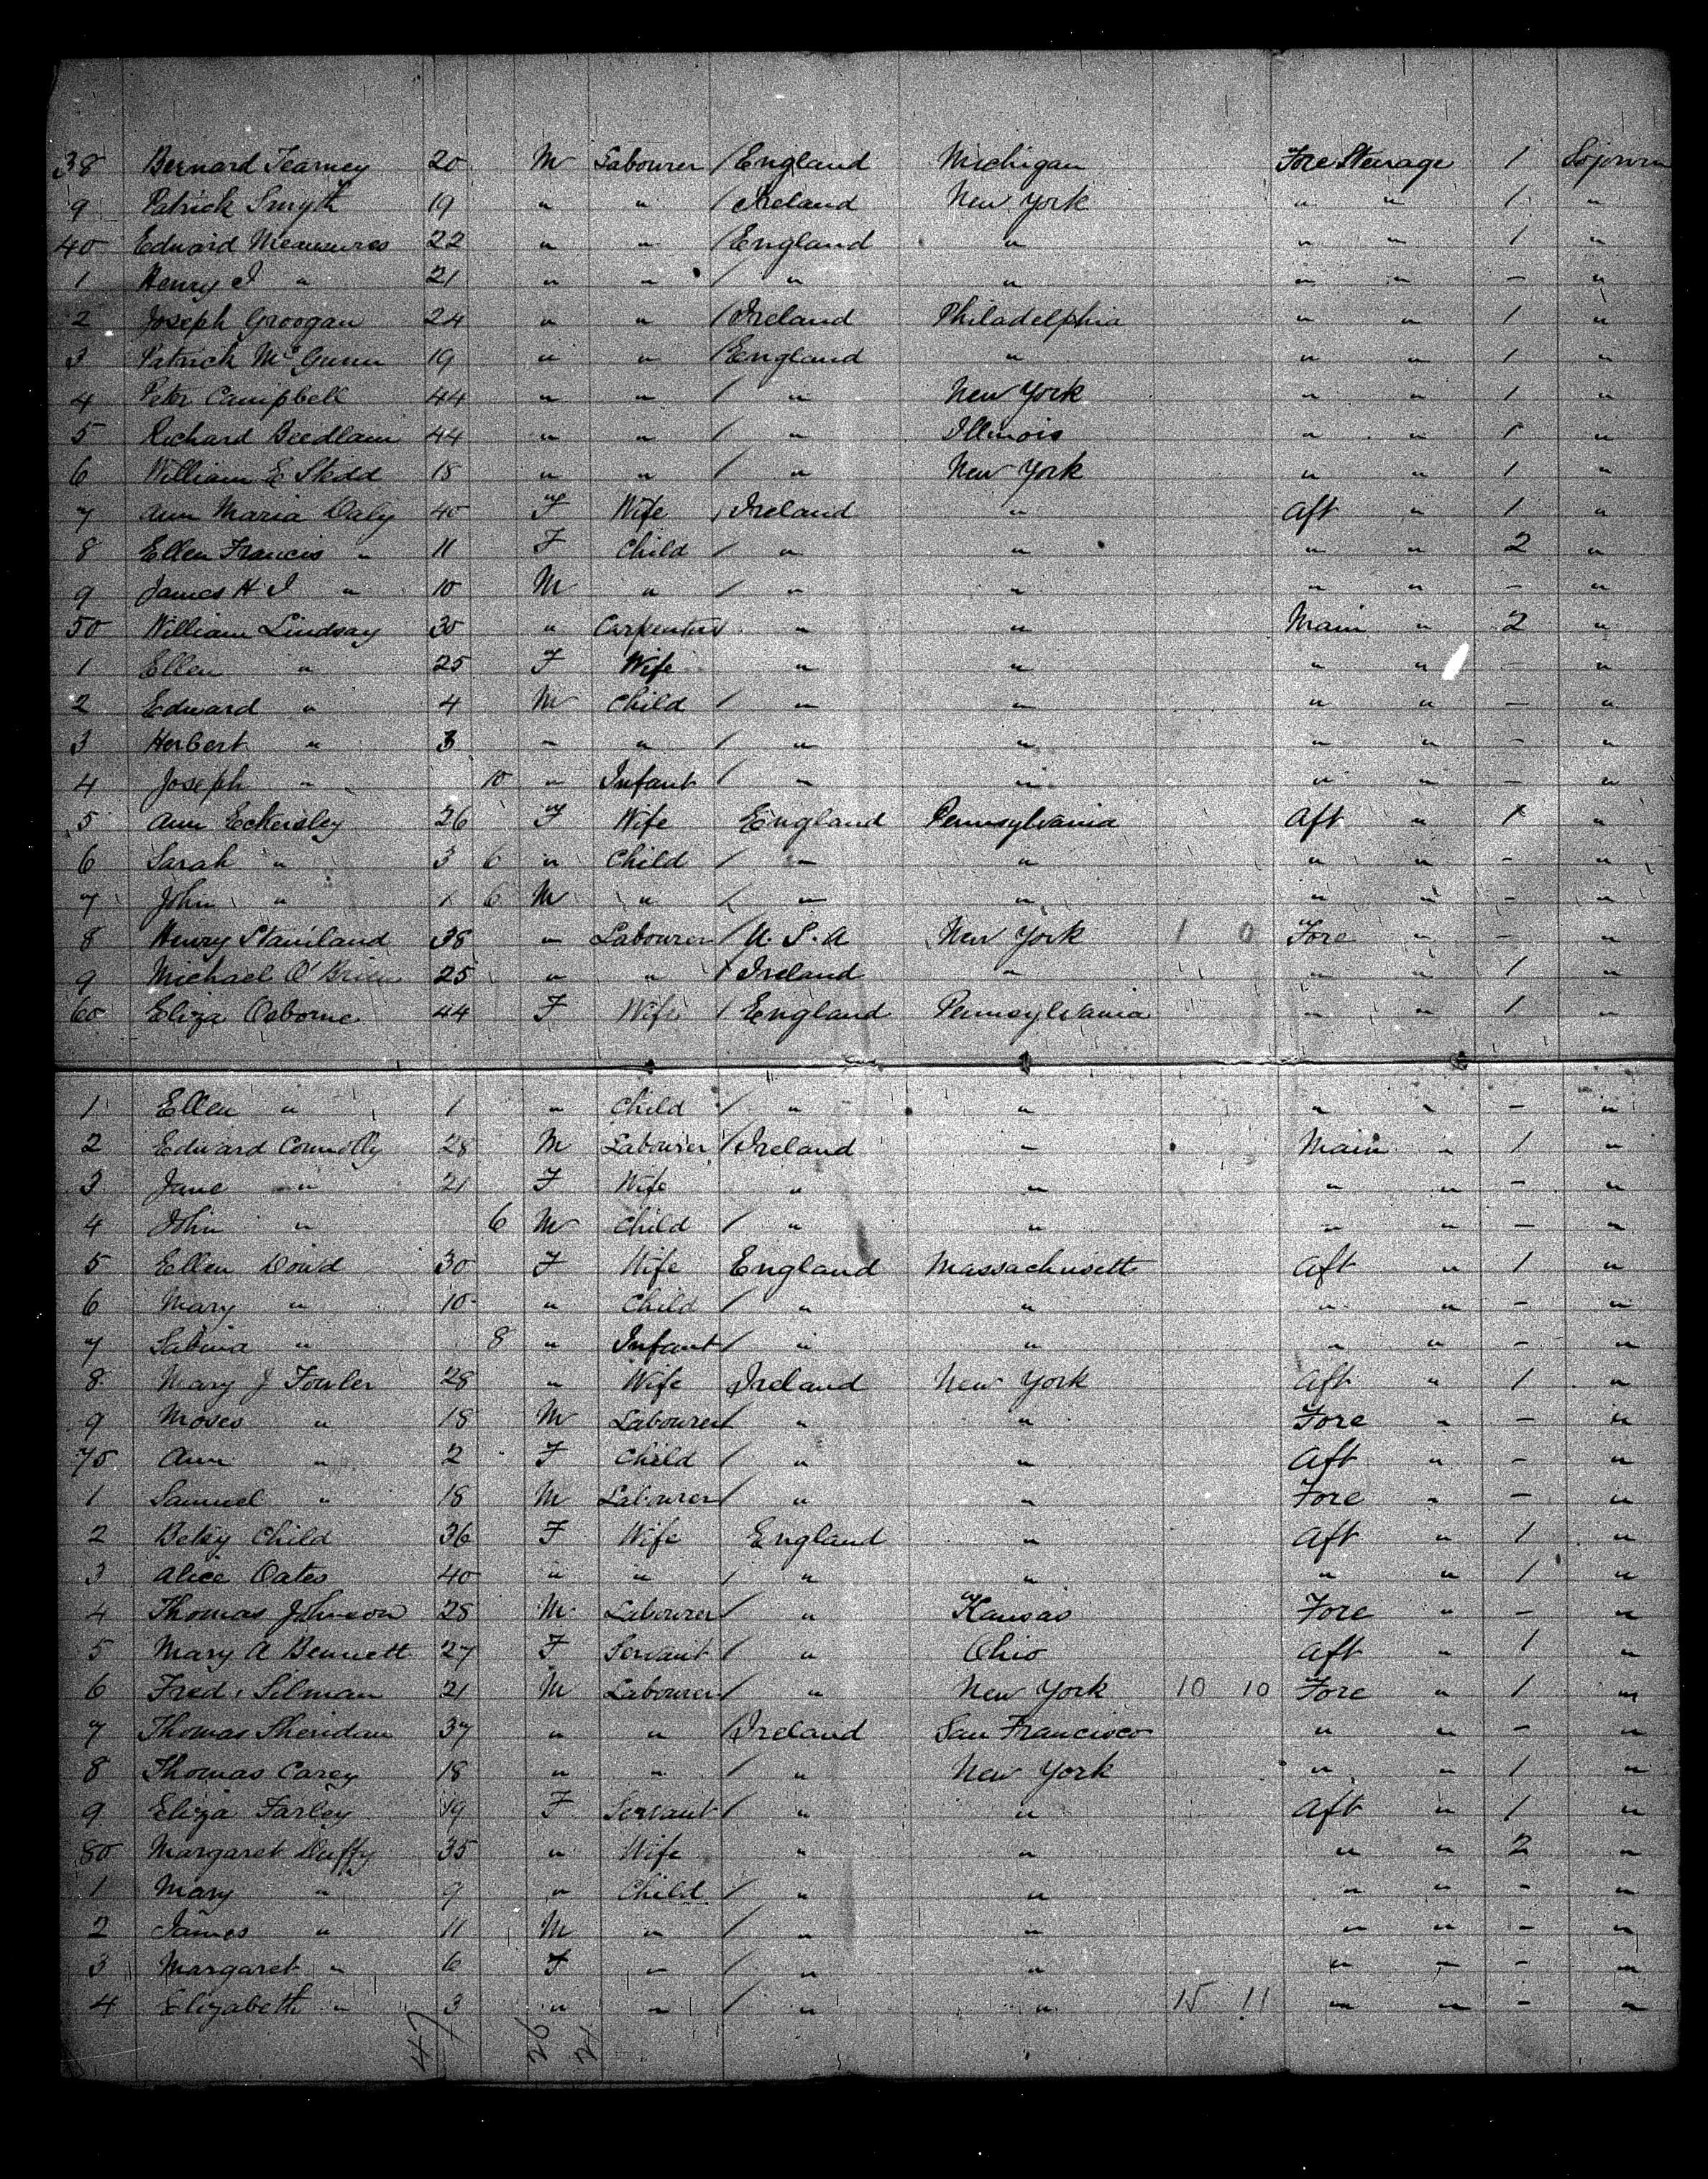 38 Bernard Tearney 20 M Labourer / England Michigan Fore Steerage 1 Sojourn
9 Patrick Smyth 19 " " / Ireland New York " " 1 "
40 Edward Measures 22 " " / England " " " 1 "
1 Henry J " 21 " " / " " " " - "
2 Joseph Groogan 24 " " / Ireland Philadelphia " " 1 "
3 Patrick McGunn 19 " " / England " " " 1 "
4 Peter Campbell 44 " " / " New York " " 1 "
5 Richard Beedlam 44 " " / " Illinois " " 1 "
6 William E Skidd 18 " " / " New York " " 1 "
7 Ann Maria Daly 40 F Wife / Ireland " Aft " 1 "
8 Ellen Francis " 11 F Child / " " " " 2 "
9 James H J " 10 M " / " " " " - "
50 William Lindsay 30 " Carpenter / " " Main " 2 "
1 Ellen " 25 F Wife " " " " - "
2 Edward " 4 M Child / " " " " - "
3 Herbert " 3 " " / " " " " - "
4 Joseph " 10 " Infant / " " " " - "
5 Ann Eckersley 26 F Wife England Pennsylvania Aft " 1 "
6 Sarah " 3 6 " Child / " " " " - "
7 John " 1 6 M " / " " " " - "
8 Henry Staniland 38 " Labourer / U.S.A New York 1 0 Fore " - "
9 Michael O'Brien 25 " " / Ireland " " " 1 "
60 Eliza Osborne 44 F Wife / England Pennsylvania " " 1 "
1 Ellen " 1 " Child / " " " " - "
2 Edward Connolly 28 M Labourer / Ireland " Main " 1 "
3 Jane " 21 F Wife " " " " - "
4 John " 6 M Child / " " " " - "
5 Ellen Dowd 30 F Wife England Massachusetts Aft " 1 "
6 Mary " 10 " Child / " " " " - "
7 Sabina " 8 " Infant / " " " " - "
8 Mary J Fowler 28 " Wife Ireland New York Aft " 1 "
9 Moses " 18 M Labourer / " " Fore " - "
70 Ann " 2 F Child / " " Aft " - "
1 Samuel " 18 M Labourer / " " Fore " - "
2 Betsy Child 36 F Wife England " Aft " 1 "
3 Alice Oates 40 " " / " " " " 1 "
4 Thomas Johnson 28 M Labourer / " Kansas Fore " - "
5 Mary A Bennett 27 F Servant / " Ohio Aft " 1 "
6 Fred. Silman 21 M Labourer / " New York 10 10 Fore " 1 "
7 Thomas Sheridan 37 " " / Ireland San Francisco " " - "
8 Thomas Carey 18 " " / " New York " " 1 "
9 Eliza Farley 19 F Servant / " " Aft " 1 "
80 Margaret Duffy 35 " Wife " " " " 2 "
1 Mary " 9 " Child / " " " " - "
2 James " 11 M " / " " " " - "
3 Margaret " 6 F " / " " " " - "
4 Elizabeth " 3 " " / " " 15 11 " " - "
47 26 21